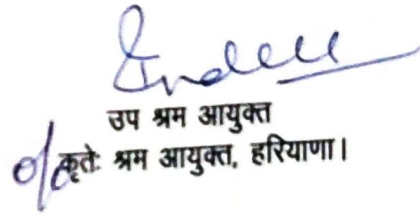 उप श्रम आयुक्त
कृतेः श्रम आयुक्त, हरियाणा।